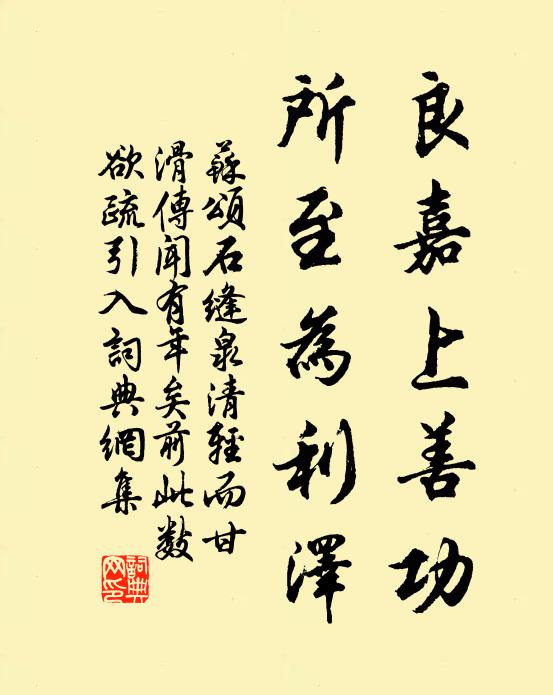 良嘉上善功
所至為利澤
蘇頌石縫泉清輕而甘
滑傳聞有年矣前此數
欲疏引入詞典網集
詞典網印